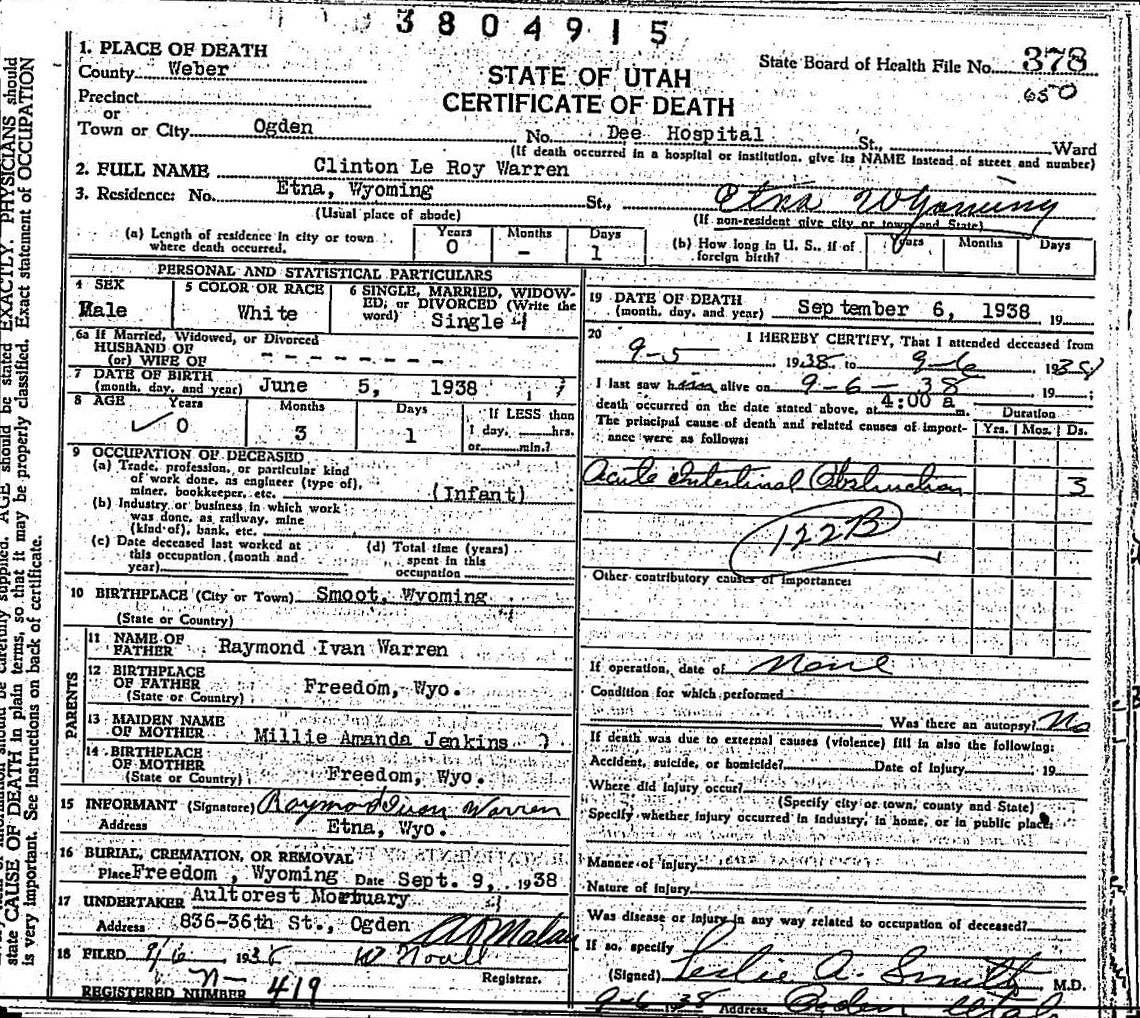 3804915
1. PLACE OF DEATH
County Weber
STATE OF UTAH
CERTIFICATE OF DEATH
State Board of Health File No. 378
650
Precinct
or
Town or City Ogden No. Dee Hospital St., Ward
(If death occurred in a hospital or institution, give its NAME instead of street and number)
2. FULL NAME Clinton Le Roy Warren
3. Residence: No. Etna, Wyoming St., Etna Wyoming
(Usual place of abode) (If non-resident give city or town and State)
(a) Length of residence in city or town where death occurred. Years 0 Months - Days 1
(b) How long in U. S., if of foreign birth? Years Months Days
PERSONAL AND STATISTICAL PARTICULARS
4 SEX
Male
5 COLOR OR RACE
White
6 SINGLE, MARRIED, WIDOW-
ED, or DIVORCED (Write the
word) Single
6a If Married, Widowed, or Divorced
HUSBAND OF
(or) WIFE OF - - - - - - - -
7 DATE OF BIRTH
(month, day, and year) June 5, 1938
8 AGE Years Months Days If LESS than
0 3 1 1 day, hrs.
or min.?
9 OCCUPATION OF DECEASED
(a) Trade, profession, or particular kind
of work done, as engineer (type of),
miner, bookkeeper, etc. (Infant)
(b) Industry or business in which work
was done, as railway, mine
(kind of), bank, etc.
(c) Date deceased last worked at
this occupation (month and
year)
(d) Total time (years)
spent in this
occupation
10 BIRTHPLACE (City or Town) Smoot, Wyoming
(State or Country)
PARENTS
11 NAME OF
FATHER Raymond Ivan Warren
12 BIRTHPLACE
OF FATHER Freedom, Wyo.
(State or Country)
13 MAIDEN NAME
OF MOTHER Millie Amanda Jenkins
14 BIRTHPLACE
OF MOTHER
(State or Country) Freedom, Wyo.
15 INFORMANT (Signature) Raymod Ivan Warren
Address Etna, Wyo.
16 BURIAL, CREMATION, OR REMOVAL
Place Freedom, Wyoming Date Sept. 9, 1938
17 UNDERTAKER Aultorest Mortuary
Address 836-36th St., Ogden
18 FILED 9/6 1938
Registrar.
REGISTERED NUMBER 419
19 DATE OF DEATH
(month, day, and year) September 6, 1938 19
20 I HEREBY CERTIFY, That I attended deceased from
9-5 1938 to 9-6 1938
I last saw him alive on 9-6-38 19 ;
death occurred on the date stated above, at 4:00 a m.
The principal cause of death and related causes of import-
ance were as follows:
Duration
Yrs. Mos. Ds.
Acute Intestinal Obstruction 3
122B
Other contributory causes of importance:
If operation, date of None
Condition for which performed
Was there an autopsy? No
If death was due to external causes (violence) fill in also the following:
Accident, suicide, or homicide? Date of Injury 19
Where did injury occur?
(Specify city or town, county and State)
Specify whether injury occurred in industry, in home, or in public place:
Manner of injury
Nature of injury
Was disease or injury in any way related to occupation of deceased?
If so, specify
(Signed) Leslie A. Smith M.D.
9-6 38 Address Ogden Utah
should be carefully supplied. AGE should be stated EXACTLY. PHYSICIANS should
state CAUSE OF DEATH in plain terms, so that it may be properly classified. Exact statement of OCCUPATION
is very important. See instructions on back of certificate.